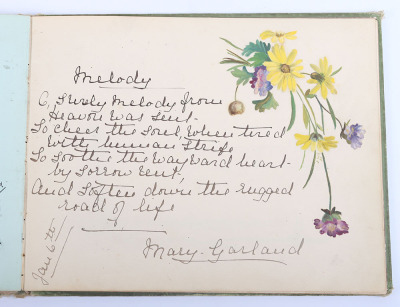 Melody
O, surely melody from
Heaven was sent-
To cheer the soul, when tired
With human strife
To soothe the wayward heart
by sorrow rent,
And soften down the rugged
road of life
Mary. Garland
Jan 6th